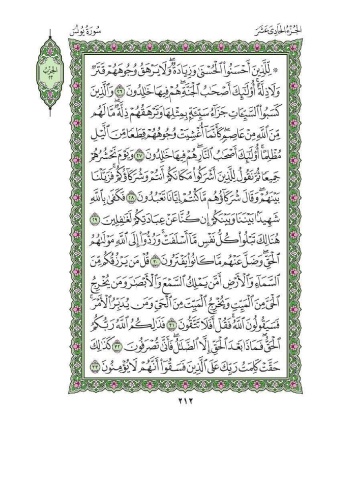 سُورَةُ يُونُسَ
الجُزْءُ الحَادِي عَشَرَ
الحِزْب
٢٢
۞ لِّلَّذِينَ أَحْسَنُوا۟ ٱلْحُسْنَىٰ وَزِيَادَةٌ ۖ وَلَا يَرْهَقُ وُجُوهَهُمْ قَتَرٌ
وَلَا ذِلَّةٌ ۚ أُو۟لَـٰٓئِكَ أَصْحَـٰبُ ٱلْجَنَّةِ ۖ هُمْ فِيهَا خَـٰلِدُونَ ٢٦ وَٱلَّذِينَ
كَسَبُوا۟ ٱلسَّيِّـَٔاتِ جَزَآءُ سَيِّئَةٍۭ بِمِثْلِهَا وَتَرْهَقُهُمْ ذِلَّةٌ ۖ مَّا لَهُم
مِّنَ ٱللَّهِ مِنْ عَاصِمٍ ۖ كَأَنَّمَآ أُغْشِيَتْ وُجُوهُهُمْ قِطَعًا مِّنَ ٱلَّيْلِ
مُظْلِمًا ۚ أُو۟لَـٰٓئِكَ أَصْحَـٰبُ ٱلنَّارِ ۖ هُمْ فِيهَا خَـٰلِدُونَ ٢٧ وَيَوْمَ نَحْشُرُهُمْ
جَمِيعًا ثُمَّ نَقُولُ لِلَّذِينَ أَشْرَكُوا۟ مَكَانَكُمْ أَنتُمْ وَشُرَكَآؤُكُمْ ۚ فَزَيَّلْنَا
بَيْنَهُمْ ۖ وَقَالَ شُرَكَآؤُهُم مَّا كُنتُمْ إِيَّانَا تَعْبُدُونَ ٢٨ فَكَفَىٰ بِٱللَّهِ
شَهِيدًۢا بَيْنَنَا وَبَيْنَكُمْ إِن كُنَّا عَنْ عِبَادَتِكُمْ لَغَـٰفِلِينَ ٢٩
هُنَالِكَ تَبْلُوا۟ كُلُّ نَفْسٍ مَّآ أَسْلَفَتْ ۚ وَرُدُّوٓا۟ إِلَى ٱللَّهِ مَوْلَىٰهُمُ
ٱلْحَقِّ ۖ وَضَلَّ عَنْهُم مَّا كَانُوا۟ يَفْتَرُونَ ٣٠ قُلْ مَن يَرْزُقُكُم مِّنَ
ٱلسَّمَآءِ وَٱلْأَرْضِ أَمَّن يَمْلِكُ ٱلسَّمْعَ وَٱلْأَبْصَـٰرَ وَمَن يُخْرِجُ
ٱلْحَىَّ مِنَ ٱلْمَيِّتِ وَيُخْرِجُ ٱلْمَيِّتَ مِنَ ٱلْحَىِّ وَمَن يُدَبِّرُ ٱلْأَمْرَ ۚ
فَسَيَقُولُونَ ٱللَّهُ ۚ فَقُلْ أَفَلَا تَتَّقُونَ ٣١ فَذَٰلِكُمُ ٱللَّهُ رَبُّكُمُ
ٱلْحَقُّ ۖ فَمَاذَا بَعْدَ ٱلْحَقِّ إِلَّا ٱلضَّلَـٰلُ ۖ فَأَنَّىٰ تُصْرَفُونَ ٣٢ كَذَٰلِكَ
حَقَّتْ كَلِمَتُ رَبِّكَ عَلَى ٱلَّذِينَ فَسَقُوٓا۟ أَنَّهُمْ لَا يُؤْمِنُونَ ٣٣
٢١٢